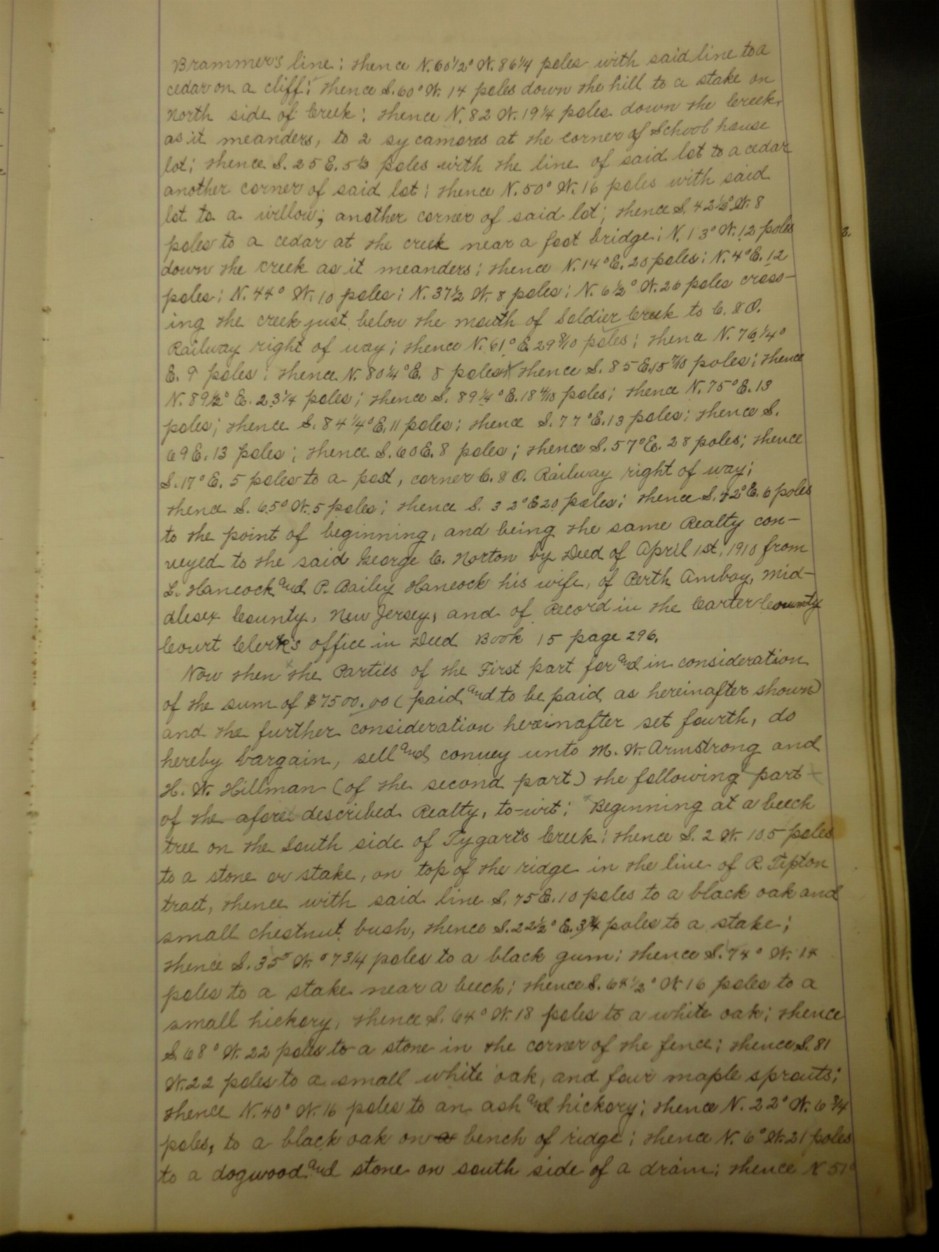 Brammer's line; thence N. 60½° W. 86¼ poles with said line to a
cedar on a cliff; thence S. 60° W. 14 poles down the hill to a stake on
north side of Creek; thence N. 82 W. 19¼ poles down the Creek
as it meanders, to 2 sycamores at the corner of School house
lot; thence S. 25 E. 5 poles with the line of said lot to a cedar
another corner of said lot; thence N. 50° W. 16 poles with said
lot to a willow, another corner of said lot; thence S. 42½° W. 8
poles to a cedar at the creek near a foot bridge; N. 13° W. 12 poles
down the creek as it meanders; thence N. 14° E. 20 poles; N. 4° E. 12
poles; N. 44° W. 10 poles; N. 37½ W. 8 poles; N. 6½° W. 26 poles cross-
ing the creek just below the mouth of Soldier Creek to C. & O.
Railway right of way; thence N. 61° E. 29 8/10 poles; thence N. 76¼°
E. 9 poles; thence N. 80¼° E. 8 poles thence S. 85 E. 15 poles; thence
N. 89½° E. 23¼ poles; thence S. 89¼° E. 18 4/10 poles; thence N. 75° E. 13
poles; thence S. 84¼° E. 11 poles; thence S. 77° E. 13 poles; thence S.
69 E. 13 poles; thence S. 60 E. 8 poles; thence S. 57° E. 28 poles; thence
S. 17° E. 5 poles to a post, corner C. & O. Railway right of way;
thence S. 65° W. 5 poles; thence S. 32° E 20 poles; thence S. 42° E. 6 poles
to the point of beginning, and being the same Realty con-
veyed to the said George C. Norton by Deed of April 1st, 1910 from
L. Hancock and P. Bailey Hancock his wife, of Perth Amboy, Mid-
dlesex County, New Jersey, and of record in the Carter County
Court Clerk's office in Deed Book 15 page 296.
Now then the Parties of the First part for and in consideration
of the sum of $7500.00 (paid and to be paid as hereinafter shown)
and the further consideration hereinafter set fourth, do
hereby bargain, sell and convey unto M. W. Armstrong and
H. W. Hillman (of the second part) the following part
of the afore described Realty, to-wit; "Beginning at a beech
tree on the South side of Tygarts Creek; thence S. 2 W. 105 poles
to a stone or stake, on top of the ridge in the line of R. Tipton
tract, thence with said line S. 75 E. 10 poles to a black oak and
small chestnut bush, thence S. 22½° E. 3¾ poles to a stake;
thence S. 35° W. 73/4 poles to a black gum; thence S. 74° W. 14
poles to a stake near a beech; thence S. 64½° W 16 poles to a
small hickory, thence S. 64° W. 18 poles to a white oak; thence
S. 68° W. 22 poles to a stone in the corner of the fence; thence S. 81
W. 22 poles to a small white oak, and four maple sprouts;
thence N. 40° W. 16 poles to an ash and hickory; thence N. 22° W. 6¾
poles, to a black oak on bench of ridge; thence N. 6° W. 21 poles
to a dogwood and stone on south side of a drain; thence N 51°